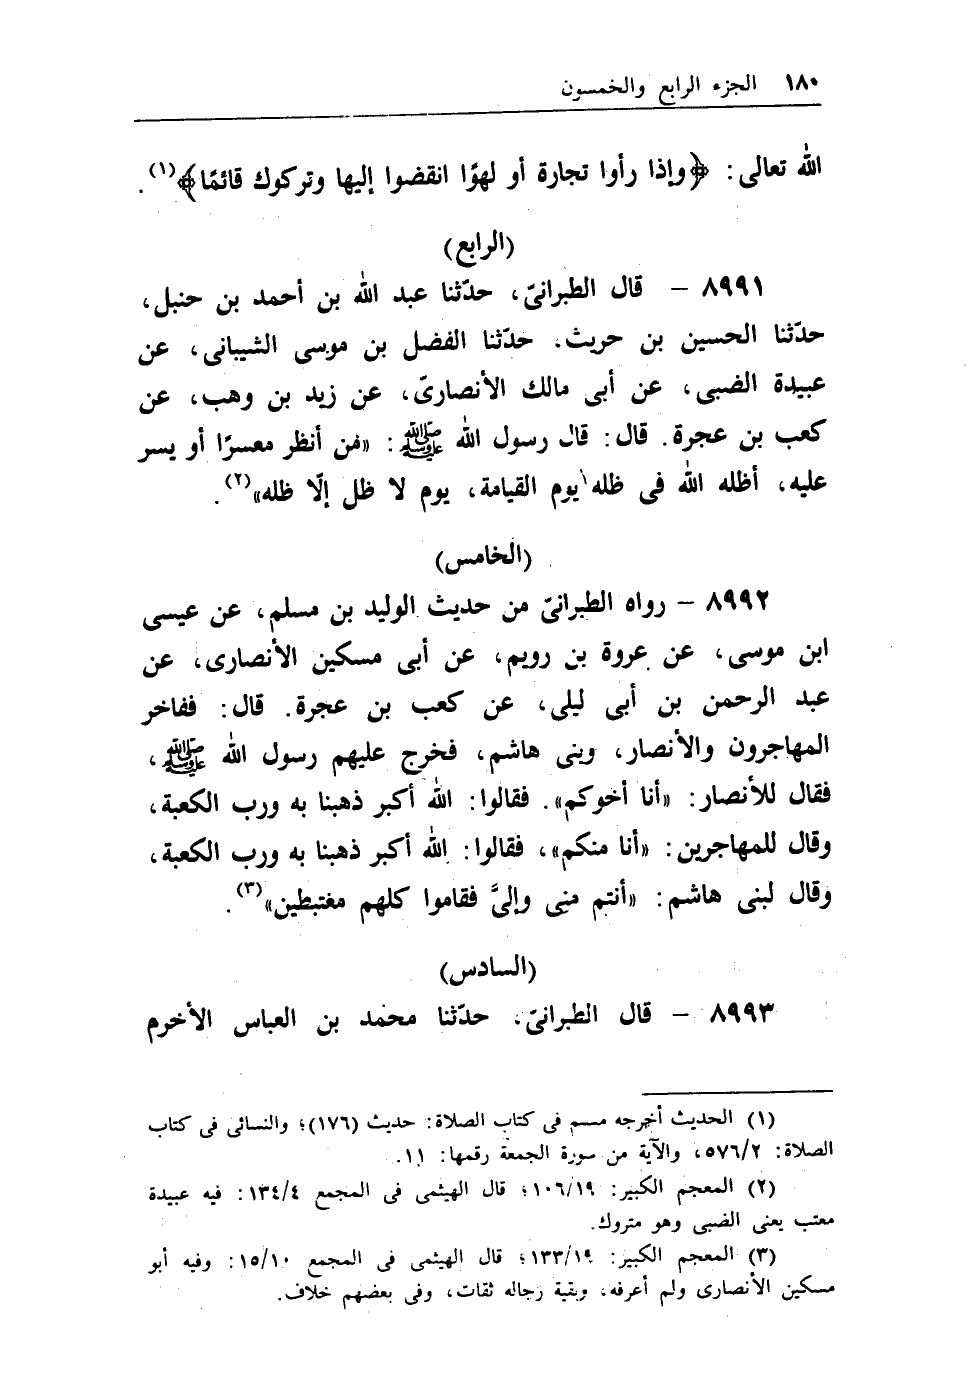 ١٨٠ الجزء الرابع والخمسون
الله تعالى: ﴿وإذا رأوا تجارة أو لهوًا انقضوا إليها وتركوك قائمًا﴾(١).
(الرابع)
٨٩٩١ – قال الطبرانىّ، حدّثنا عبد الله بن أحمد بن حنبل،
حدّثنا الحسين بن حريث، حدّثنا الفضل بن موسى الشيبانى، عن
عبيدة الضبى، عن أبى مالك الأنصارىّ، عن زيد بن وهب، عن
كعب بن عجرة. قال: قال رسول الله ﷺ: «من أنظر معسرًا أو يسر
عليه، أظله الله فى ظله يوم القيامة، يوم لا ظل إلّا ظله»(٢).
(الخامس)
٨٩٩٢ – رواه الطبرانىّ من حديث الوليد بن مسلم، عن عيسى
ابن موسى، عن عروة بن رويم، عن أبى مسكين الأنصارى، عن
عبد الرحمن بن أبى ليلى، عن كعب بن عجرة. قال: ففاخر
المهاجرون والأنصار، وبنى هاشم، فخرج عليهم رسول الله ﷺ،
فقال للأنصار: «أنا أخوكم». فقالوا: الله أكبر ذهبنا به ورب الكعبة،
وقال للمهاجرين: «أنا منكم»، فقالوا: الله أكبر ذهبنا به ورب الكعبة،
وقال لبنى هاشم: «أنتم منى وإلىَّ فقاموا كلهم مغتبطين»(٣).
(السادس)
٨٩٩٣ – قال الطبرانىّ، حدّثنا محمد بن العباس الأخرم
(١) الحديث أخرجه مسم فى كتاب الصلاة: حديث (١٧٦)؛ والنسائى فى كتاب
الصلاة: ٥٧٦/٢، والآية من سورة الجمعة رقمها: ١١.
(٢) المعجم الكبير: ١٠٦/١٩؛ قال الهيثمى فى المجمع ١٣٤/٤: فيه عبيدة
معتب يعنى الضبى وهو متروك.
(٣) المعجم الكبير: ١٣٣/١٩؛ قال الهيثمى فى المجمع ١٥/١٠: وفيه أبو
مسكين الأنصارى ولم أعرفه، وبقية رجاله ثقات، وفى بعضهم خلاف.